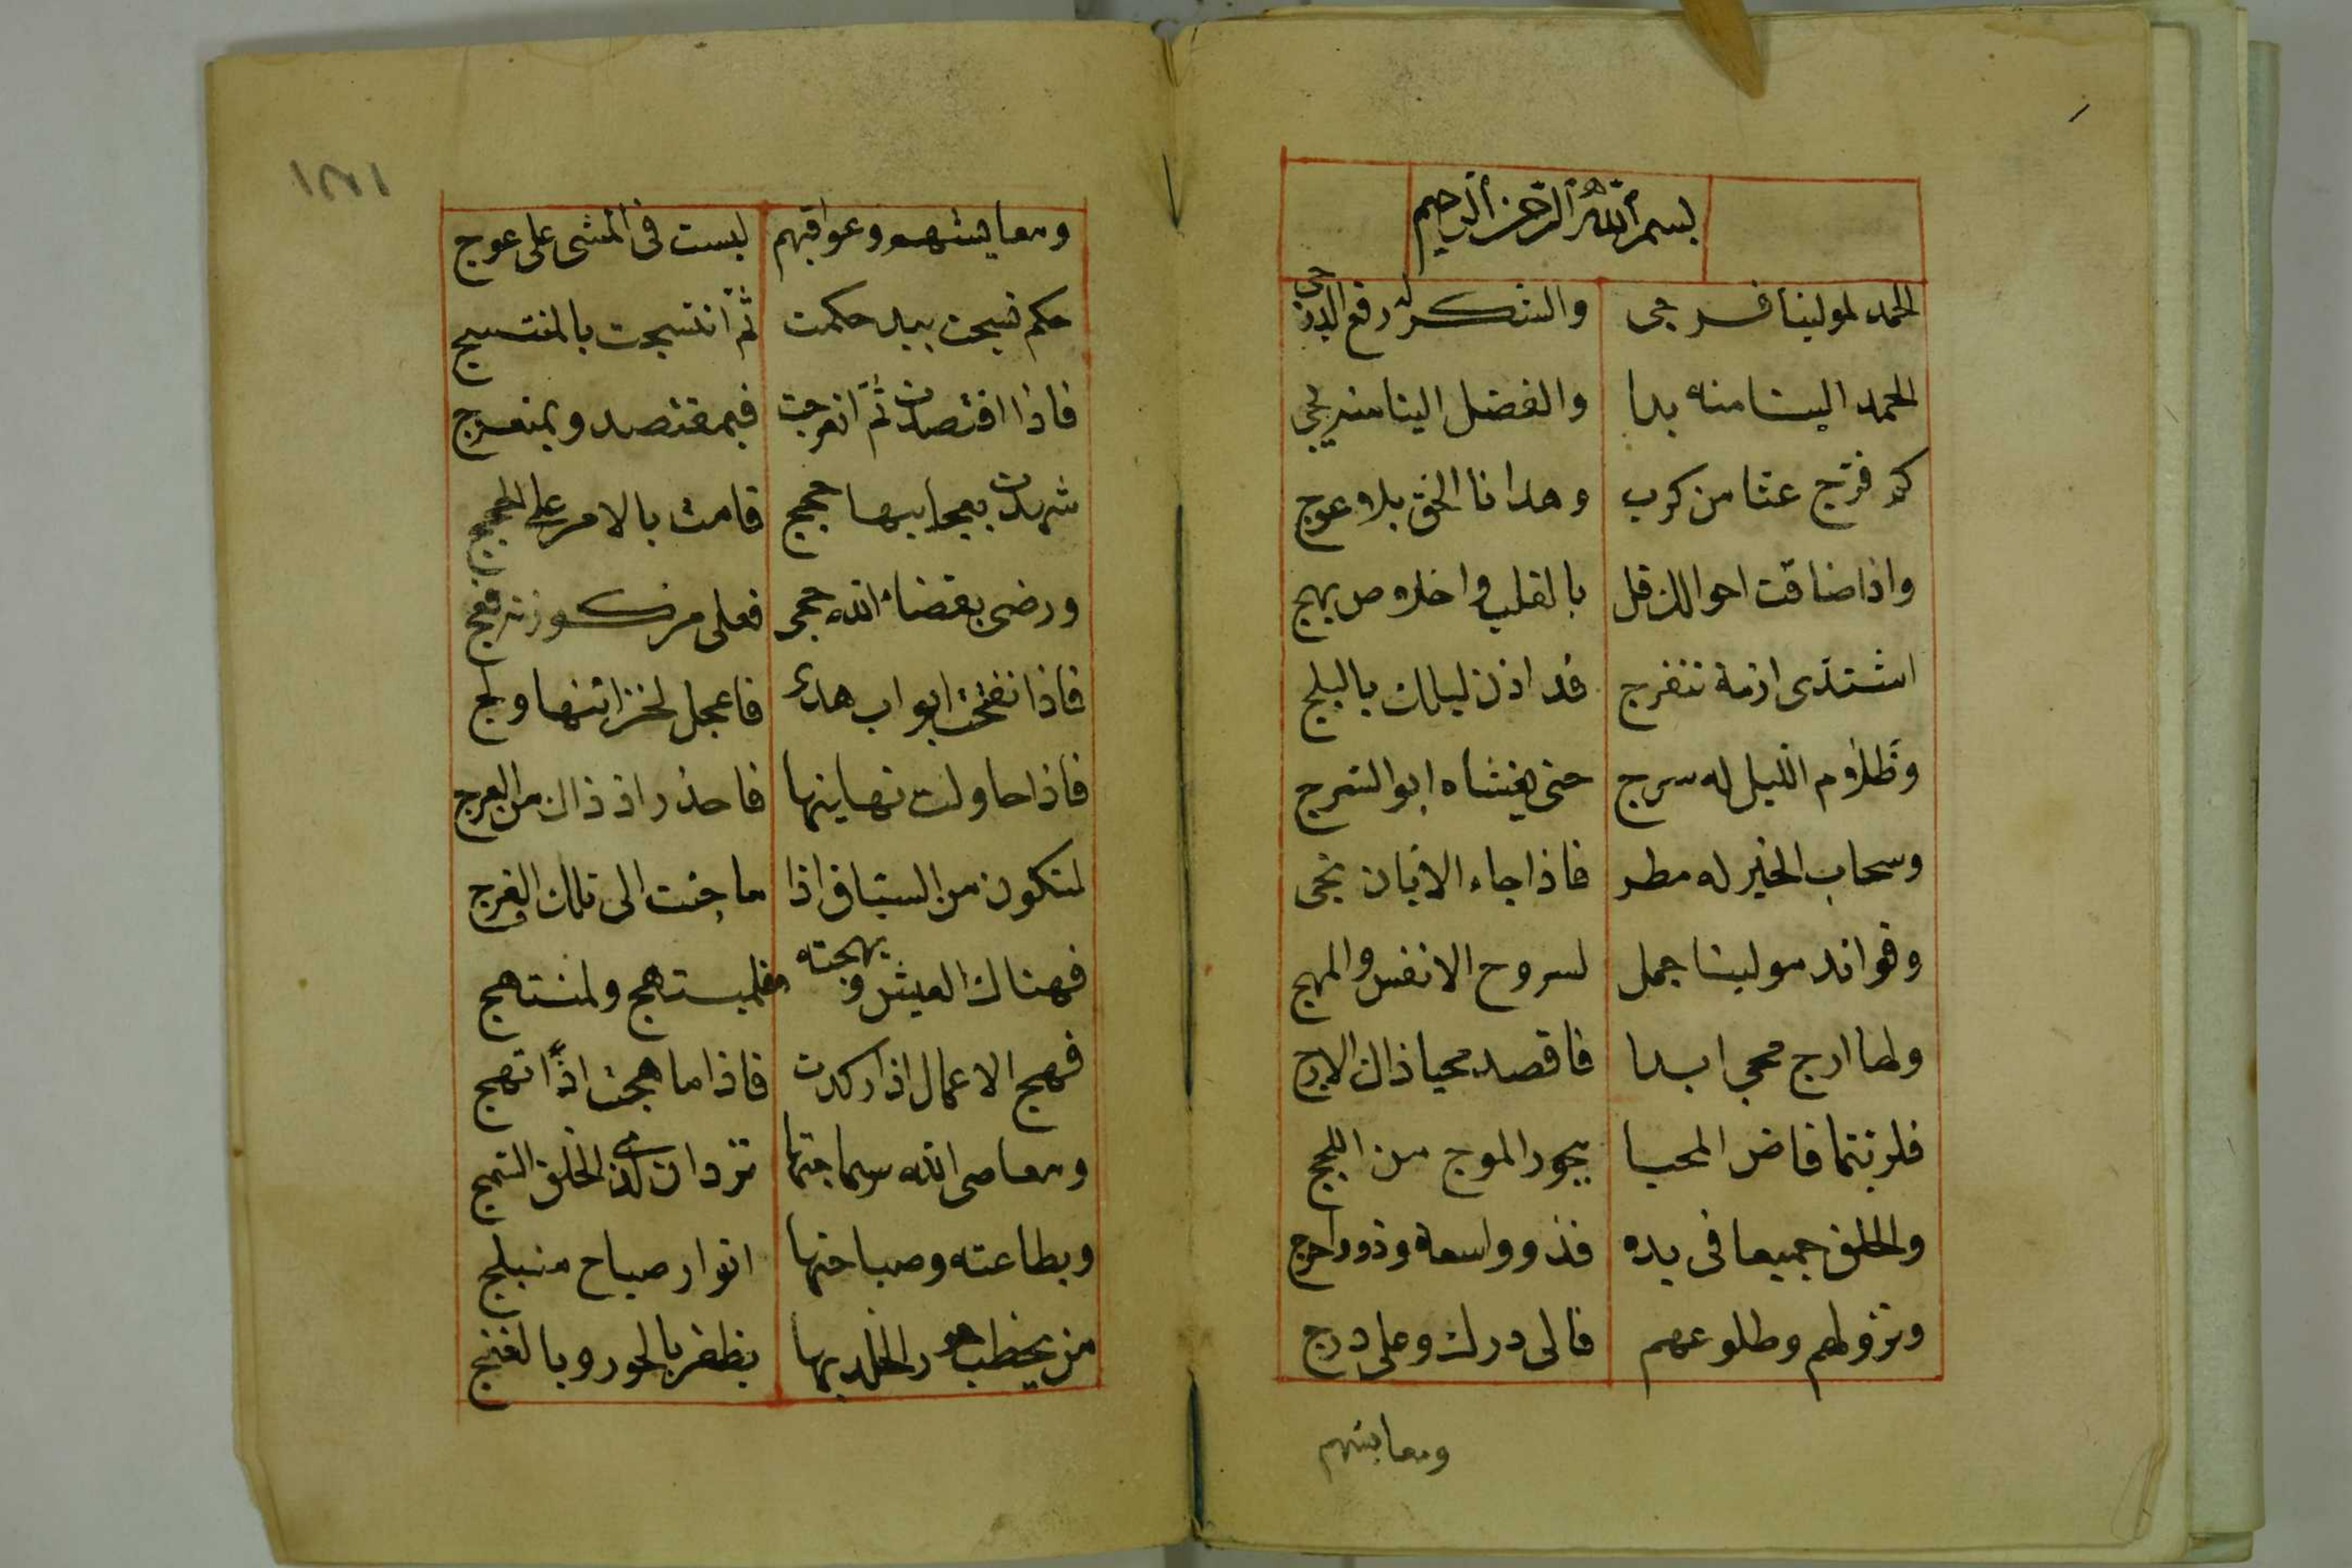 بسم الله الرحمن الرحيم
الحمد لمولينا فرجى والشكر له رفع الدجى
الحمد الينا منه بدا والفضل الينا منه يجى
كم فرّج عنا من كرب وهدانا الحق بلا عوج
واذا ضاقت احوالك قل بالقلب واخلاص بهج
اشتدى ازمة تنفرج قد اذن ليلك بالبلج
وظلام الليل له سرج حتى يغشاه ابو السرج
وسحاب الخير له مطر فاذا جاء الابان تجى
وفوائد مولينا جمل لسروح الانفس والمهج
ولها ارج محى ابدا فاقصد محيا ذاك الارج
فلربتما فاض المحيا ببحور الموج من اللجج
والخلق جميعا فى يده فذوو سعة وذوو حرج
ونزولهم وطلوعهم فالى درك وعلى درج
ومعايشهم
١٢٧١
ومعايشهم وعواقبهم ليست فى المشى على عوج
حكم نسجت بيد حكمت ثم انتسجت بالمنتسج
فاذا اقتصدت ثم انعرجت فبمقتصد وبمنعرج
شهدت بعجايبها حجج قامت بالامر على الحجج
ورضى بقضاء الله حجى فعلى مركوزته فعج
فاذا انفتحت ابواب هدى فاعجل لخزائنها ولج
فاذا حاولت نهايتها فاحذر اذ ذاك من العرج
لتكون من السباق اذا ما جئت الى تلك الفرج
فهناك العيش وبهجته فلمبتهج ولمنتهج
فهج الاعمال اذا ركدت فاذا ما هجت اذًا تهج
ومعاصى الله سماجتها تزدان لذى الخلق السمج
وبطاعته وصباحتها انوار صباح منبلج
من يخطب حور الخلد بها يظفر بالحور وبالغنج